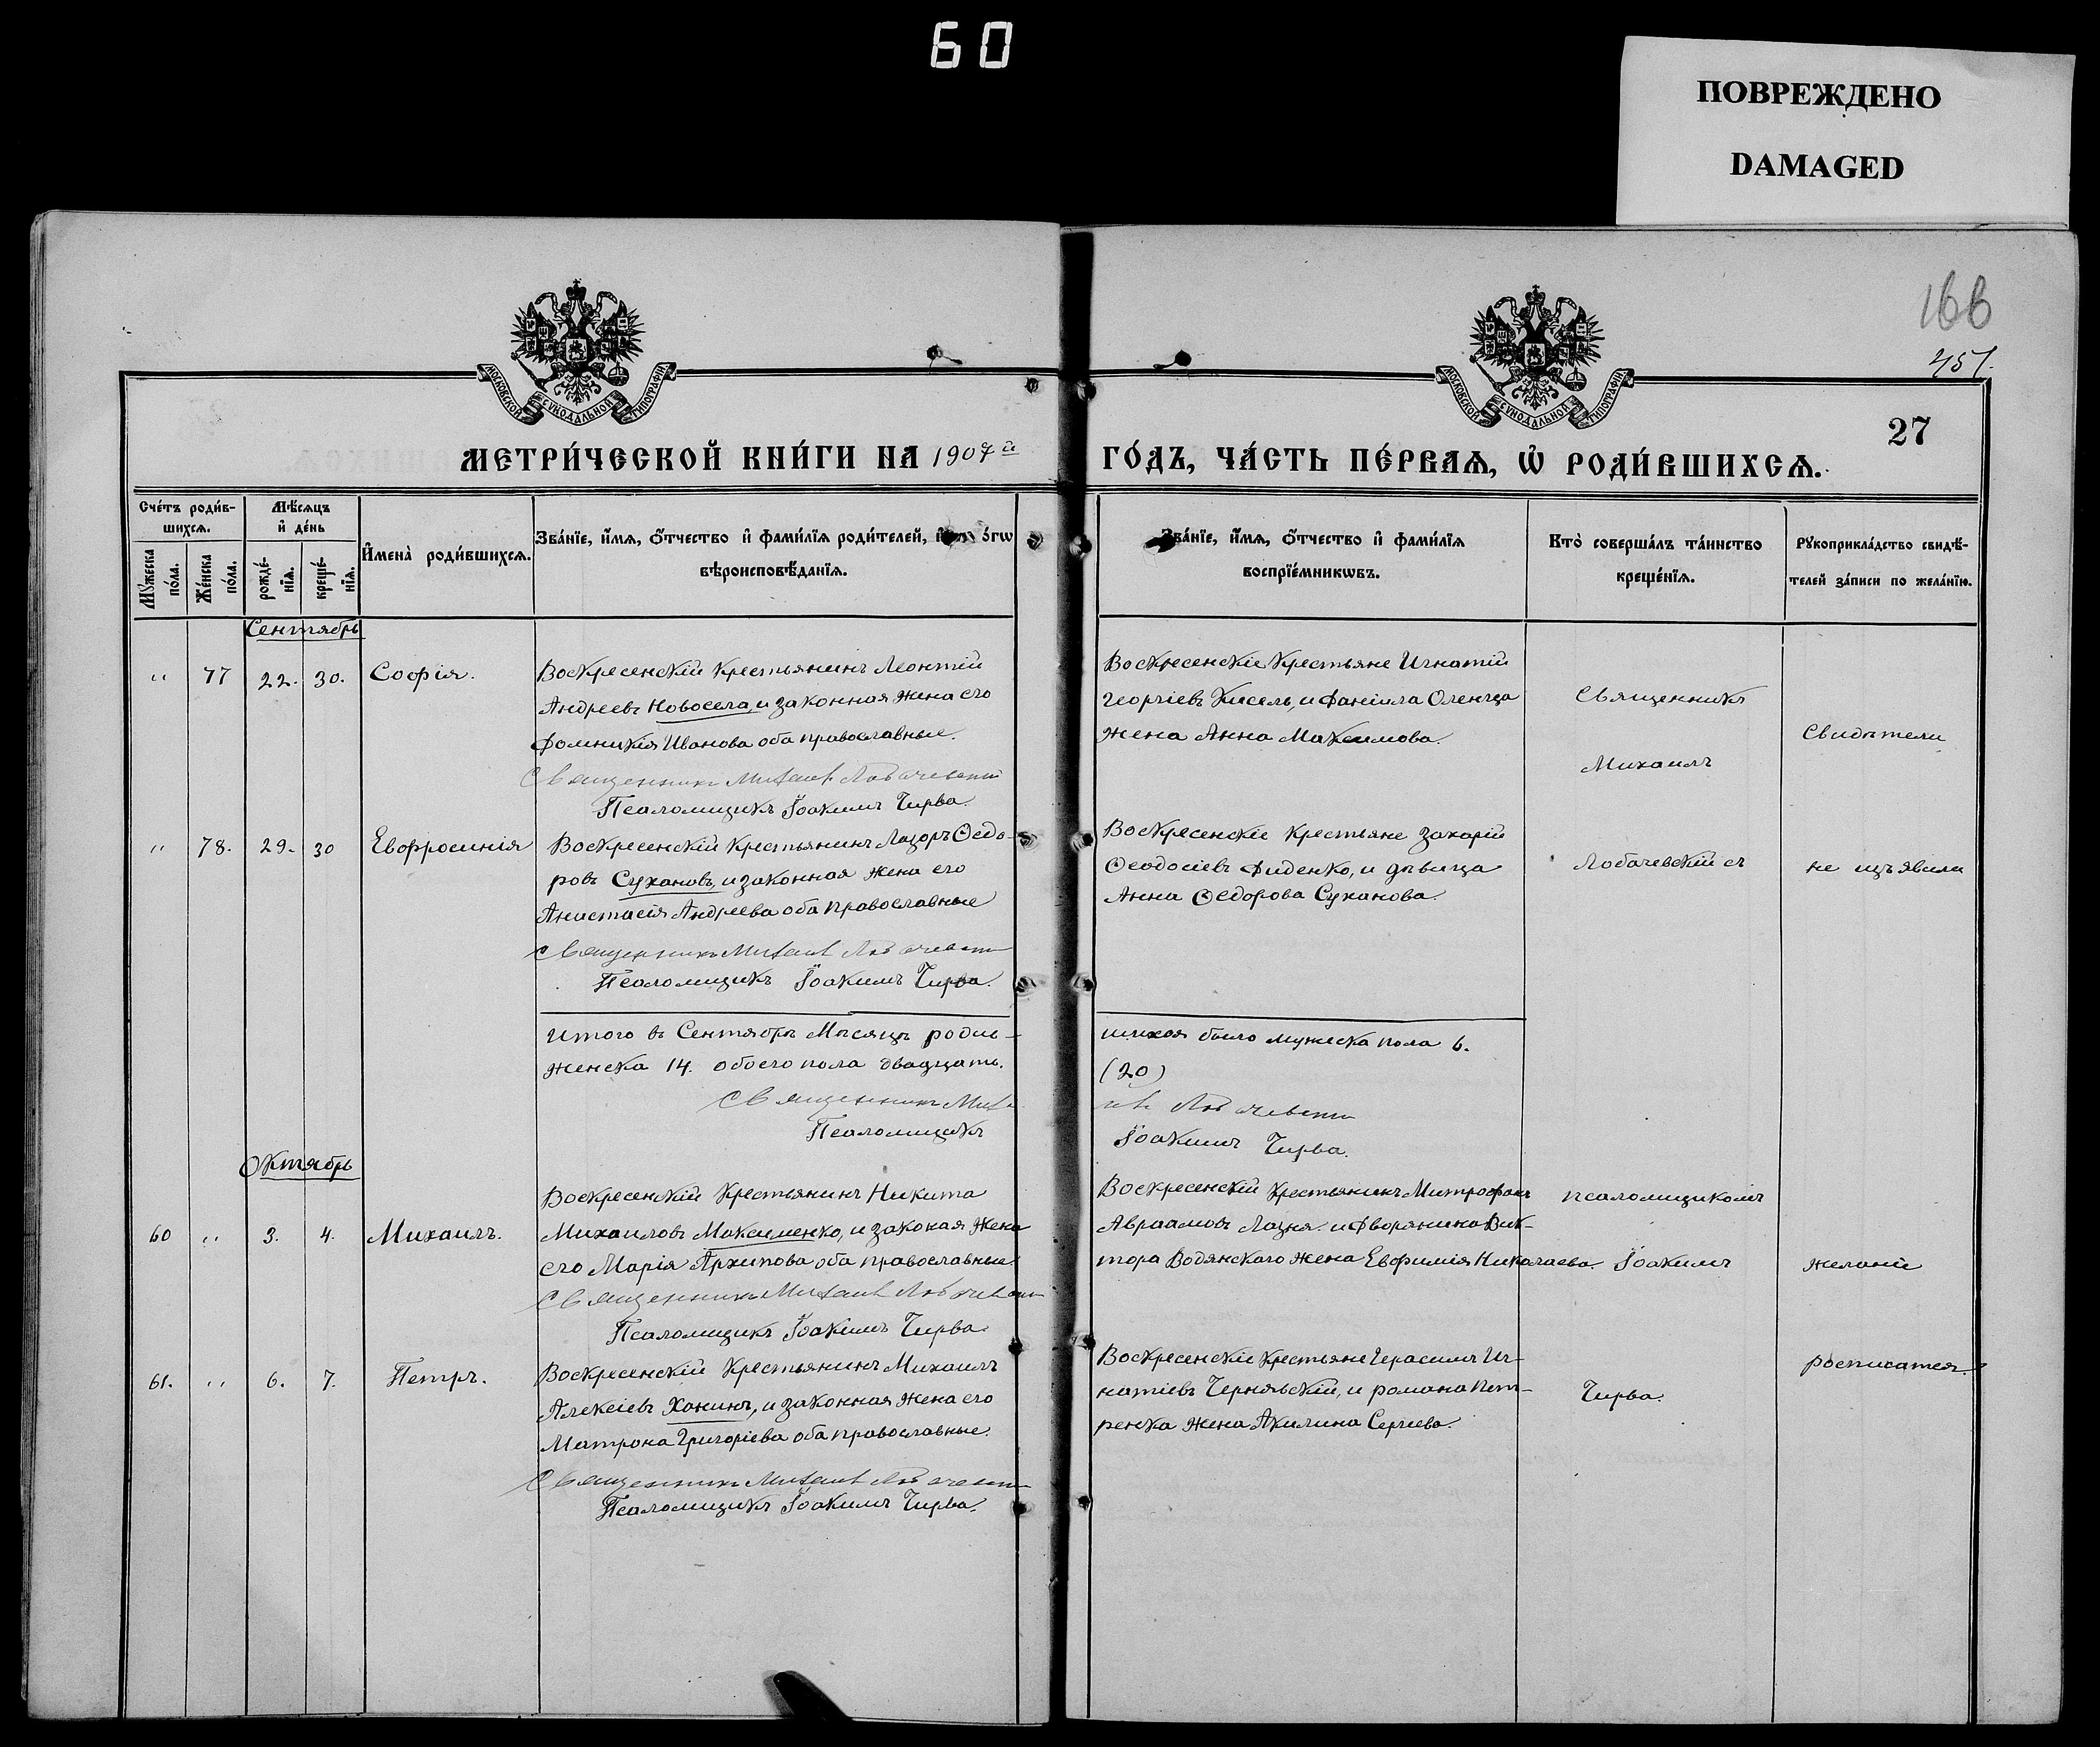 60
ПОВРЕЖДЕНО
DAMAGED
166
451.
27
МОСКОВСКОЙ СУНОДАЛЬНОЙ ТИПОГРАФІИ
МОСКОВСКОЙ СУНОДАЛЬНОЙ ТИПОГРАФІИ
МЕТРИ́ЧЕСКОЙ КНИ́ГИ НА 1907й ГО́ДЪ, ЧА́СТЬ ПЕ́РВАѦ, Ѡ҆ РОДИ́ВШИХСѦ.
Сче́тъ роди́в-
шихсѧ.
Мѣ́сѧцъ
и҆ де́нь
Мꙋ́жеска по́ла.
Же́нска по́ла.
рожде́-
нїѧ.
креще́-
нїѧ.
И҆мена̀ роди́вшихсѧ.
Зва́нїе, и҆́мѧ, ѻ҆́тчество и҆ фами́лїѧ роди́телей,
вѣроисповѣ́данїѧ.
Зва́нїе, и҆́мѧ, ѻ҆́тчество и҆ фами́лїѧ
воспрїе́мникѡвъ.
Кто̀ соверша́лъ та́инство
креще́нїѧ.
Рꙋкоприкла́дство свидѣ́-
телей за́писи по жела́нїю.
Сентябрь
" 77 22. 30. Софія.
Воскресенскій крестьянинъ Леонтій
Андреевъ Новосела, и законная жена его
Фомникія Иванова оба православные.
Священникъ Михаилъ Лобачевскій
Псаломщикъ Іоакимъ Чирва.
Воскресенскіе крестьяне Игнатій
Георгіевъ Кисель, и Даніила Оленца
жена Анна Максимова.
" 78. 29. 30 Евфросинія
Воскресенскій крестьянинъ Лазоръ Ѳедо-
ровъ Сухановъ, и законная жена его
Анастасія Андреева оба православные
Священникъ Михаилъ Лобачевскій
Псаломщикъ Іоакимъ Чирва.
Воскресенскіе крестьяне Захарій
Ѳеодосіевъ Диденко, и дѣвица
Анна Ѳедорова Суханова.
Итого въ Сентябрѣ мѣсяцѣ родив-
шихся было мужеска пола 6.
женска 14. обоего пола двадцать.
(20)
Священникъ Михаилъ Лобачевскій
Псаломщикъ Іоакимъ Чирва.
Октябрь
60 " 3. 4. Михаилъ.
Воскресенскій крестьянинъ Никита
Михаиловъ Максименко, и законая жена
его Марія Архипова оба православные.
Священникъ Михаилъ Лобачевскій
Псаломщикъ Іоакимъ Чирва.
Воскресенскій крестьянинъ Митрофанъ
Авраамовъ Лазня. и дворянина Вик-
тора Водянскаго жена Евфимія Николаева.
61. " 6. 7. Петръ.
Воскресенскій крестьянинъ Михаилъ
Алексіевъ Ханинъ, и законная жена его
Матрона Григоріева оба православные.
Священникъ Михаилъ Лобачевскій
Псаломщикъ Іоакимъ Чирва.
Воскресенскіе крестьяне Герасимъ Иг-
натіевъ Черняьскій, и романа Пет-
ренка жена Акилина Сергіева.
Священникъ
Михаилъ
Лобачевскій съ
псаломщикомъ
Іоакимъ
Чирва.
Свидѣтели
не изъявили
желаніе
росписатся.